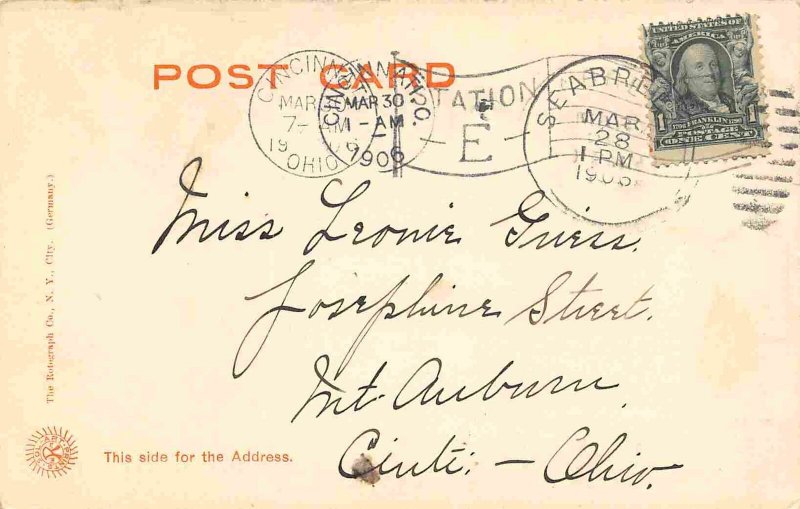 POST CARD
CINCINNATI
MAR 30
7- AM
1906
OHIO
CINCINNATI, O.
MAR 30
1-AM
1906
STATION
E
SEABR
MAR
28
1 PM
1906
UNITED STATES OF
AMERICA
1 1
1706 FRANKLIN 1790
POSTAGE
ONE CENT
Miss Leonie Guess.
Josephine Street.
Mt. Auburn
Cinti. – Ohio.
The Rotograph Co., N. Y., City. (Germany.)
This side for the Address.